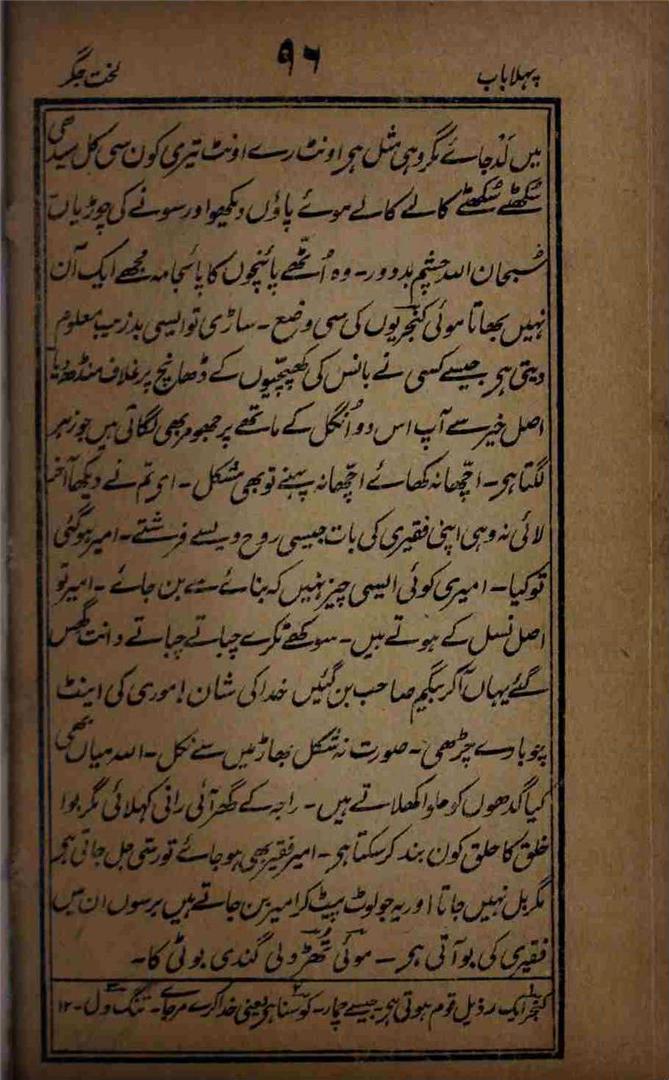 پہلا باب ۹۶ لخت جگر
میں لَد جائے مگر وہی مثل ہے اونٹ رے اونٹ تیری کون سی کل سیدھی
سُکھٹے سُکھٹے کالے کالے ہوئے پاؤں دیکھو اور سونے کی چوڑیاں
سُبحان اللہ چشمِ بد دور۔ وہ اُٹنگے پائنچوں کا پائجامہ مجھے ایک آن
نہیں بھاتا ہوئی کنجریوں کی سی وضع۔ ساڑی تو ایسی بدزیب معلوم
دیتی ہے جیسے کسی نے بانس کی کھپچیوں کے ڈھانچ پر غلاف منڈھ دیا
اصل خیر سے آپ اس دو اُنگل کے ماتھے پر جھومر بھی لگاتی ہیں جو زہر
لگتا ہے۔ اچھا نہ کھائے اچھا نہ پہنے تو بھی مشکل۔ ای تم نے دیکھا آخر
لائی نہ وہی اپنی فقیری کی بات جیسی روح ویسے فرشتے۔ امیر ہو گئی
تو کیا۔ امیری کوئی ایسی چیز نہیں کہ بنائے سے بن جائے۔ امیر تو
اصل نسل کے ہوتے ہیں۔ سوکھے ٹکرے چباتے چباتے دانت گھس
گئے یہاں آکر بیگم صاحب بن گئیں خدا کی شان! موری کی اینٹ
چوبارے چڑھی۔ صورت نہ شکل بھاڑ میں سے نکل۔ اللہ میاں بھی
کیا گدھوں کو حلوا کھلاتے ہیں۔ راجہ کے گھر آئی رانی کہلائی مگر بوا
خلق کا حلق کون بند کر سکتا ہے۔ امیر فقیر بھی ہو جائے تو رسّی جل جاتی ہے
مگر بل نہیں جاتا اور یہ جو لوٹ پیٹ کر امیر بن جاتے ہیں برسوں ان میں
فقیری کی بو آتی ہے۔ موئی تھڑدلی گندی بوٹی کا۔
کنجر ایک رذیل قوم ہوتی ہے جیسے چمار۔ ۲ کوسنا ہے یعنی خدا کرے مر جائے۔ تنگ دل۔ ۱۲